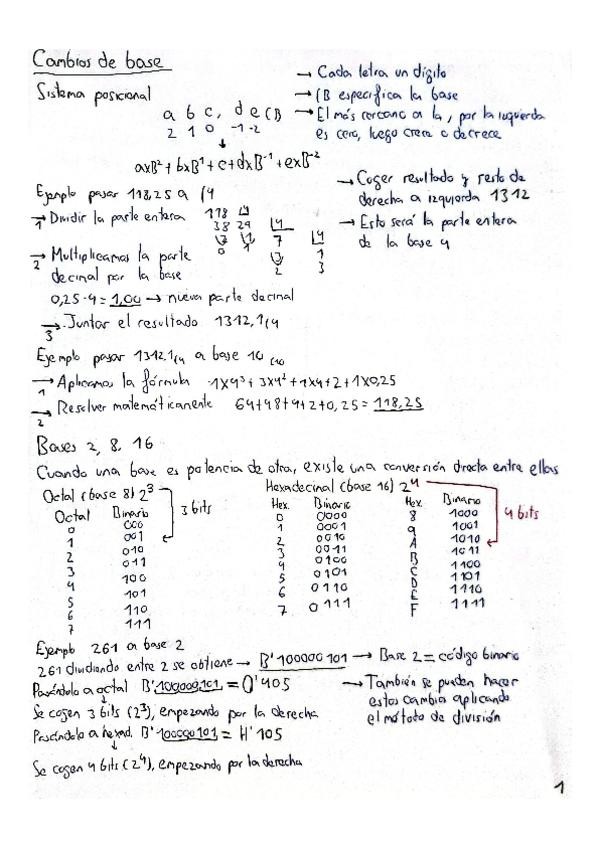 Cambios de base
Sistema posicional
a b c, d e (B
2 1 0 -1 -2
axB²+bxB¹+c+dxB⁻¹+exB⁻²
→ Cada letra un dígito
→ (B especifica la base
→ El más cercano a la , por la izquierda
es cero, luego crece o decrece
Ejemplo pasar 118,25 a (4
→ Dividir la parte entera
1
118 4
38 29 4
2 1 7 4
0 1
3 1
2 3
→ Coger resultado y resto de
derecha a izquierda 1312
→ Esto será la parte entera
de la base 4
→ Multiplicamos la parte
2
decimal por la base
0,25·4=1,00 → nueva parte decimal
→ Juntar el resultado 1312,1(4
3
Ejemplo pasar 1312,1(4 a base 10 (10
→ Aplicamos la fórmula 1x4³+3x4²+1x4+2+1x0,25
1
→ Resolver matemáticamente 64+48+4+2+0,25=118,25
2
Bases 2, 8, 16
Cuando una base es potencia de otra, existe una conversión directa entre ellas
Octal (base 8) 2³
3 bits
Octal Binario
0 000
1 001
2 010
3 011
4 100
5 101
6 110
7 111
Hexadecinal (base 16) 2⁴
4 bits
Hex. Binario Hex. Binario
0 0000 8 1000
1 0001 9 1001
2 0010 A 1010
3 0011 B 1011
4 0100 C 1100
5 0101 D 1101
6 0110 E 1110
7 0111 F 1111
Ejemplo 261 a base 2
261 dividiendo entre 2 se obtiene → B'100000101 → Base 2 = código binario
Pasándolo a octal B'100000101 = O'405
Se cogen 3 bits (2³), empezando por la derecha
→ También se pueden hacer
estos cambios aplicando
el método de división
Pasándolo a hexad. B'100000101 = H'105
Se cogen 4 bits (2⁴), empezando por la derecha
1